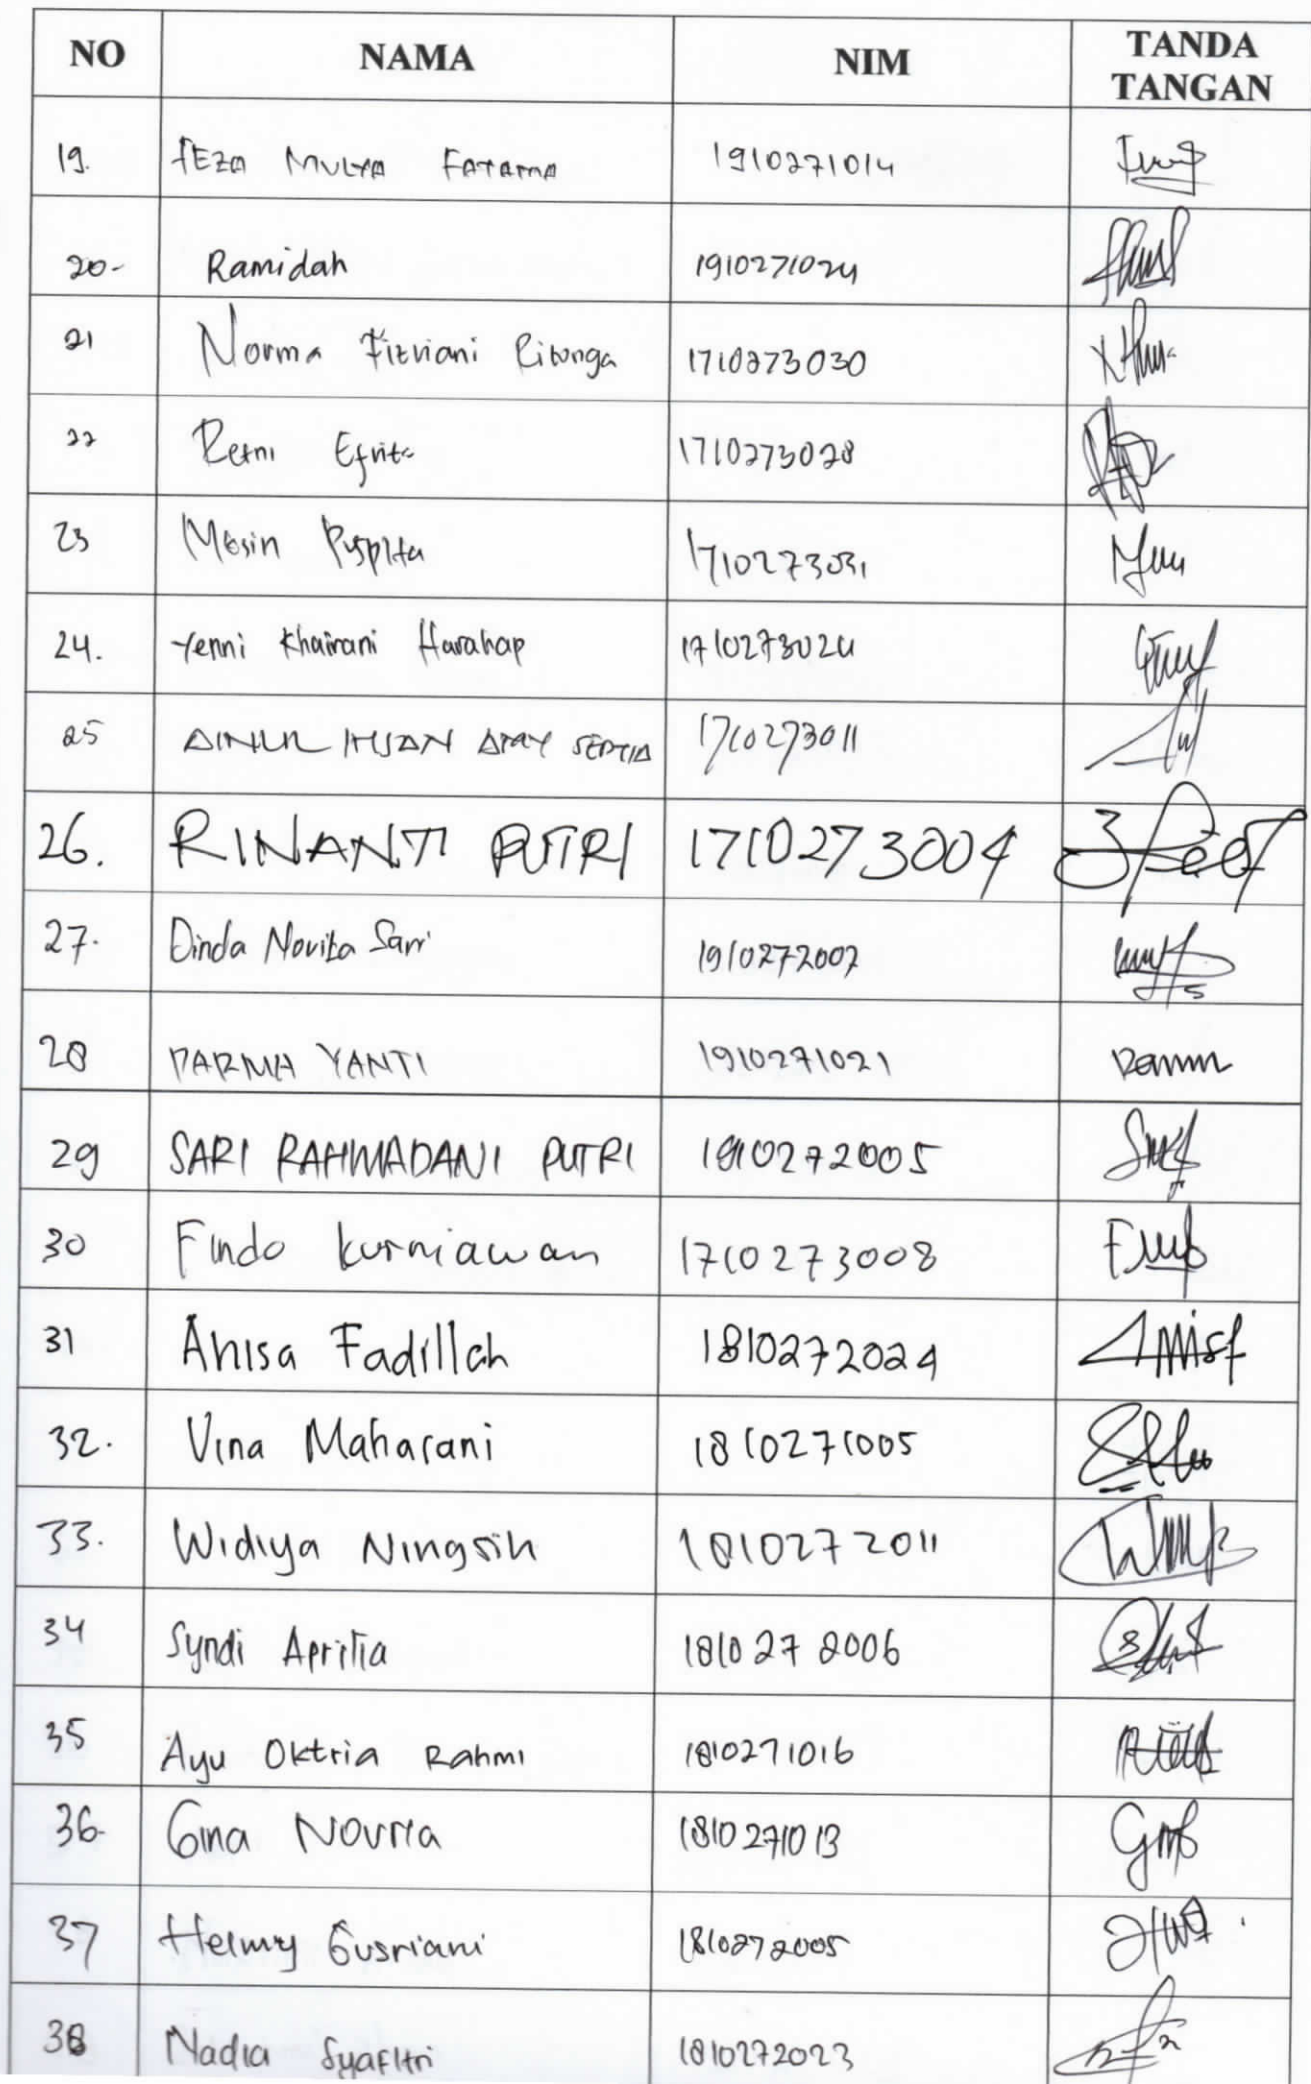 NO NAMA NIM TANDA TANGAN
19. FEZA MULYA FATAMA 1910271014
20- Ramidah 1910271024
21 Norma Fitriani Ritonga 1710273030
22 Retni Efrita 1710273028
23 Mosin Puspita 1710273031
24. Yenni Khairani Harahap 1710273024
25 AINUL IHSAN 1710273011
26. RINANTI PUTRI 1710273004
27. Dinda Novita Sari 1910272002
28 DARMA YANTI 1910271021
29 SARI RAHMADANI PUTRI 1910272005
30 Findo kurniawan 1710273008
31 Anisa Fadillah 1810272024
32. Vina Maharani 1810271005
33. Widiya Ningsih 1810272011
34 Syndi Aprilia 1810272006
35 Ayu Oktria Rahmi 1810271016
36- Gina Novria 1810271013
37 Helmy Gusriani 1810272005
38 Nadia Syafitri 1810272023